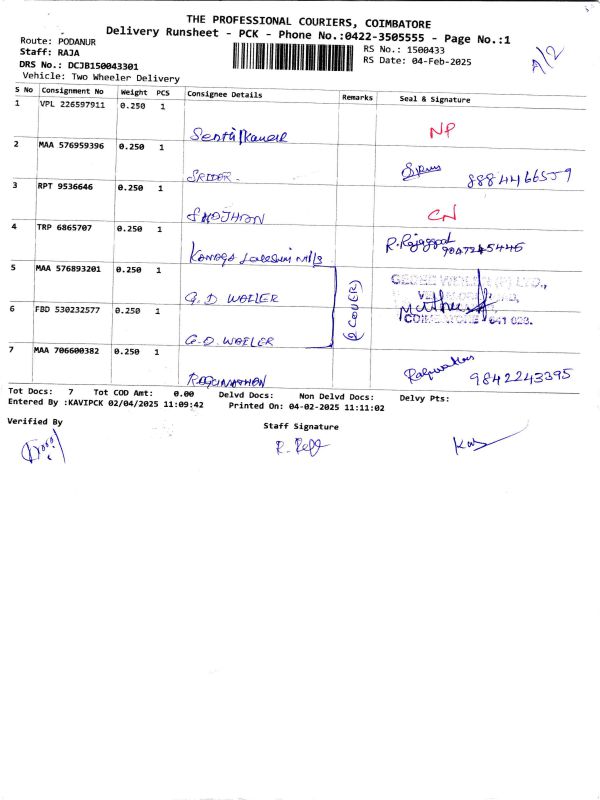 THE PROFESSIONAL COURIERS, COIMBATORE
Delivery Runsheet - PCK - Phone No.:0422-3505555 - Page No.:1
Route: PODANUR
Staff: RAJA
DRS No.: DCJB150043301
Vehicle: Two Wheeler Delivery
RS No.: 1500433
RS Date: 04-Feb-2025
A/2
S No Consignment No Weight PCS Consignee Details Remarks Seal & Signature
1 VPL 226597911 0.250 1 NP
2 MAA 576959396 0.250 1 SRIDOR. 8884466559
3 RPT 9536646 0.250 1 CN
4 TRP 6865707 0.250 1 R.Rajagopal 9047245446
5 MAA 576893201 0.250 1 G.D WAILER (2 COVER)
6 FBD 530232577 0.250 1 G.D. WAILER COIMBATORE - 641 023.
7 MAA 706600382 0.250 1 RAGUNATHAN 9842243395
Tot Docs: 7 Tot COD Amt: 0.00 Delvd Docs: Non Delvd Docs: Delvy Pts:
Entered By :KAVIPCK 02/04/2025 11:09:42 Printed On: 04-02-2025 11:11:02
Verified By
Staff Signature